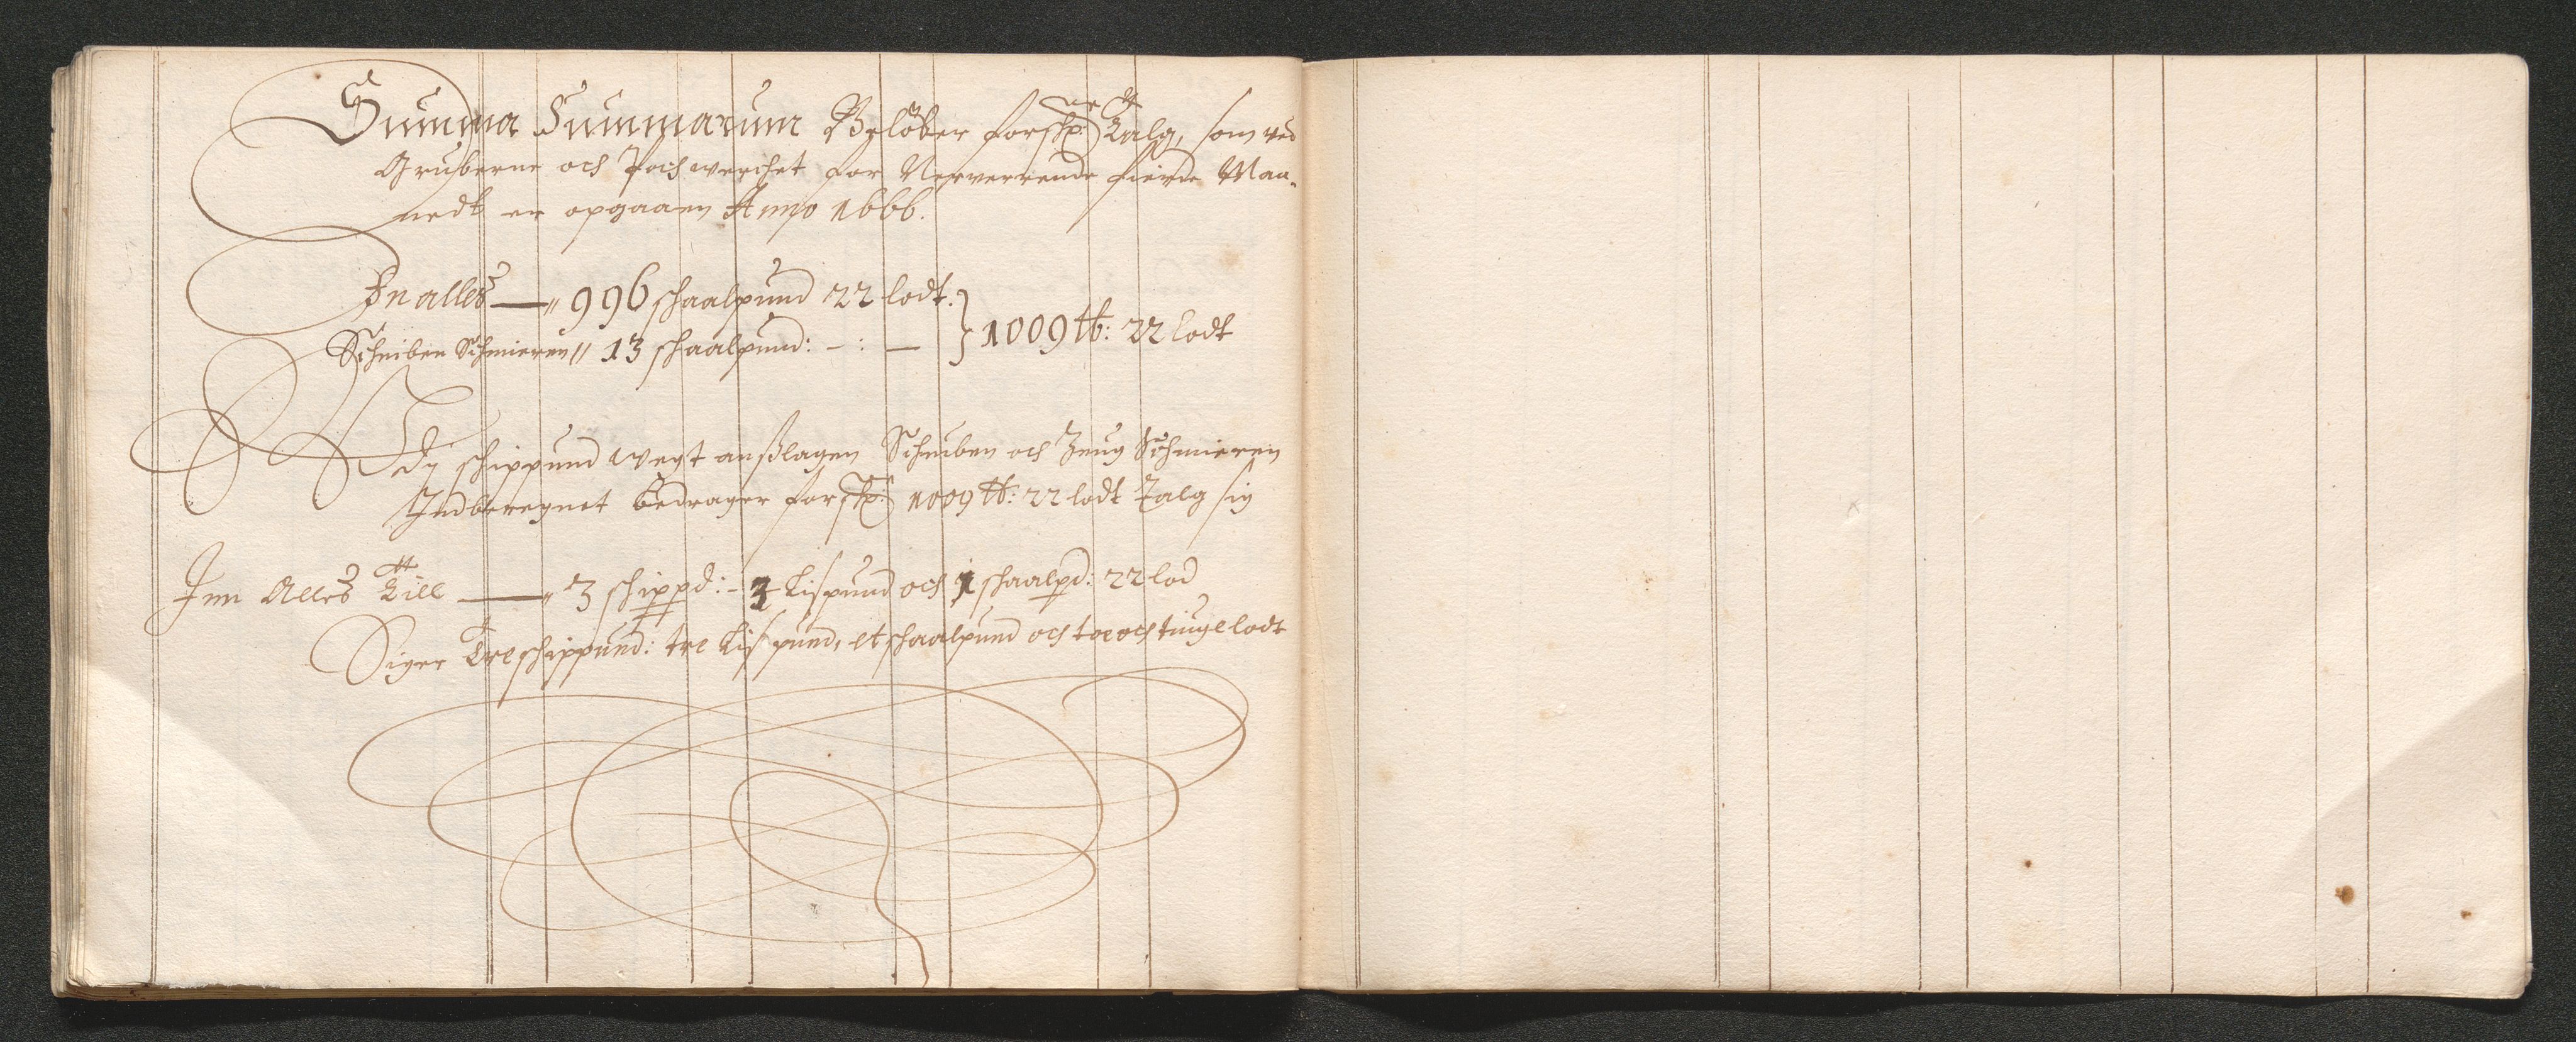 Summa Summarum Belöber forschr: Talg, som ved
Gruberne och Pochwerchet for Nerverrende fierde Maa-
nedt er opgaaen Anno 1666.
In alles — " 996 schaalpund 22 lodt. } 1009 ℔: 22 lodt
Scheiben Schmieren // 13 schaalpund: - : —
Udj schippund wegt anßlagen Scheiben och Zeug Schmieren
Indberegnet bedrager forschr: 1009 ℔: 22 lodt Talg sig
Inn Alles Till — " 3 schippd: - 3 Lispund och 1 schaalpd: 22 lod
Siger Tre schippund: tre Lispund, et schaalpund och toe och tiuge lodt